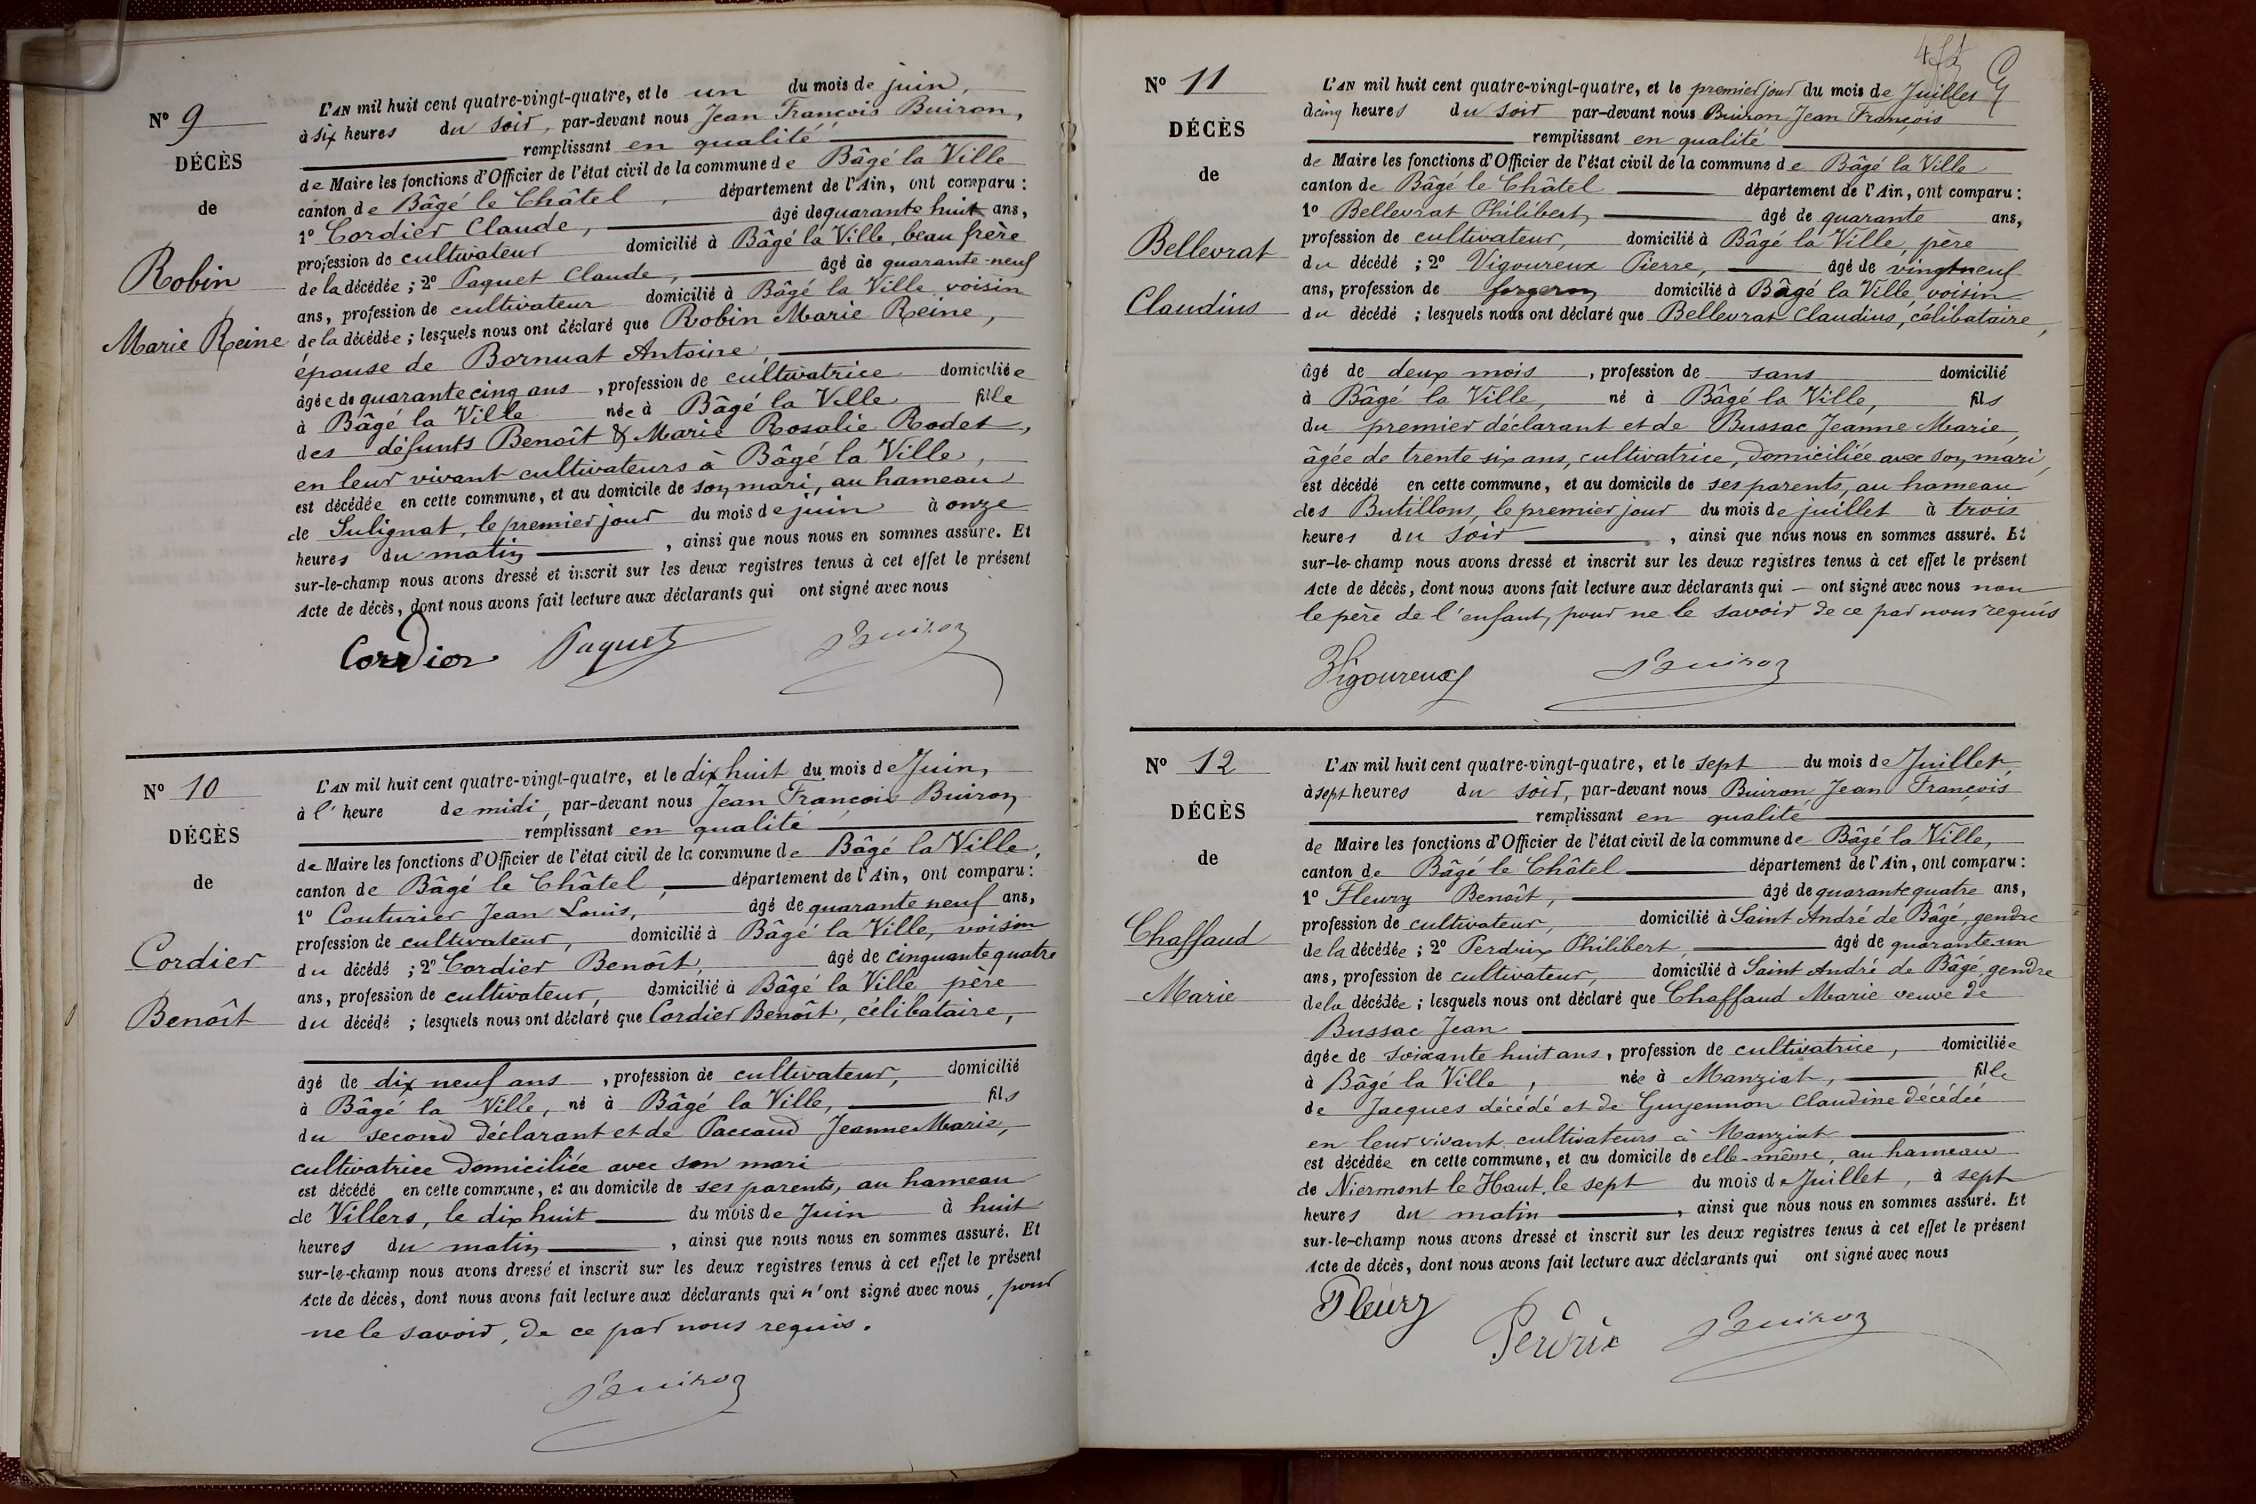 Nº 9
DÉCÈS
de
Robin
Marie Reine
L'AN mil huit cent quatre-vingt-quatre, et le un du mois de juin,
à six heures du soir, par-devant nous Jean François Buiron,
remplissant en qualité
de Maire les fonctions d'Officier de l'état civil de la commune de Bâgé la Ville
canton de Bâgé le Châtel, département de l'Ain, ont comparu :
1º Cordier Claude, âgé de quarante huit ans,
profession de cultivateur domicilié à Bâgé la Ville, beau frère
de la décédée ; 2º Paquet Claude, âgé de quarante-neuf
ans, profession de cultivateur domicilié à Bâgé la Ville voisin
de la décédée ; lesquels nous ont déclaré que Robin Marie Reine,
épouse de Bornuat Antoine,
âgée de quarante cinq ans, profession de cultivatrice domiciliée
à Bâgé la Ville née à Bâgé la Ville fille
des défunts Benoît & Marie Rosalie Rodet,
en leur vivant cultivateurs à Bâgé la Ville,
est décédée en cette commune, et au domicile de son mari, au hameau
de Sulignat, le premier jour du mois de juin à onze
heures du matin, ainsi que nous nous en sommes assuré. Et
sur-le-champ nous avons dressé et inscrit sur les deux registres tenus à cet effet le présent
Acte de décès, dont nous avons fait lecture aux déclarants qui ont signé avec nous
Cordier Paquet Buiron
Nº 10
DÉCÈS
de
Cordier
Benoît
L'AN mil huit cent quatre-vingt-quatre, et le dix huit du mois de Juin,
à l'heure de midi, par-devant nous Jean François Buiron
remplissant en qualité
de Maire les fonctions d'Officier de l'état civil de la commune de Bâgé la Ville,
canton de Bâgé le Châtel, département de l'Ain, ont comparu :
1º Couturier Jean Louis, âgé de quarante neuf ans,
profession de cultivateur, domicilié à Bâgé la Ville, voisin
du décédé ; 2º Cordier Benoît, âgé de cinquante quatre
ans, profession de cultivateur, domicilié à Bâgé la Ville père
du décédé ; lesquels nous ont déclaré que Cordier Benoît, célibataire,
âgé de dix neuf ans, profession de cultivateur, domicilié
à Bâgé la Ville, né à Bâgé la Ville, fils
du second déclarant et de Paccaud Jeanne Marie,
cultivatrice domiciliée avec son mari
est décédé en cette commune, et au domicile de ses parents, au hameau
de Villers, le dix huit du mois de Juin à huit
heures du matin, ainsi que nous nous en sommes assuré. Et
sur-le-champ nous avons dressé et inscrit sur les deux registres tenus à cet effet le présent
Acte de décès, dont nous avons fait lecture aux déclarants qui n'ont signé avec nous, pour
ne le savoir, de ce par nous requis.
Buiron
Nº 11
DÉCÈS
de
Bellevrat
Claudius
L'AN mil huit cent quatre-vingt-quatre, et le premier jour du mois de Juillet
à cinq heures du soir par-devant nous Buiron Jean François
remplissant en qualité
de Maire les fonctions d'Officier de l'état civil de la commune de Bâgé la Ville
canton de Bâgé le Châtel département de l'Ain, ont comparu :
1º Bellevrat Philibert, âgé de quarante ans,
profession de cultivateur, domicilié à Bâgé la Ville, père
du décédé ; 2º Vigoureux Pierre, âgé de vingt neuf
ans, profession de forgeron domicilié à Bâgé la Ville, voisin
du décédé ; lesquels nous ont déclaré que Bellevrat Claudius, célibataire,
âgé de deux mois, profession de sans domicilié
à Bâgé la Ville, né à Bâgé la Ville, fils
du premier déclarant et de Bussac Jeanne Marie,
âgée de trente six ans, cultivatrice, domiciliée avec son mari,
est décédé en cette commune, et au domicile de ses parents, au hameau
des Butillons, le premier jour du mois de juillet à trois
heures du soir, ainsi que nous nous en sommes assuré. Et
sur-le-champ nous avons dressé et inscrit sur les deux registres tenus à cet effet le présent
Acte de décès, dont nous avons fait lecture aux déclarants qui — ont signé avec nous non
le père de l'enfant, pour ne le savoir de ce par nous requis
Vigoureux Buiron
Nº 12
DÉCÈS
de
Chaffaud
Marie
L'AN mil huit cent quatre-vingt-quatre, et le sept du mois de Juillet,
à sept heures du soir, par-devant nous Buiron Jean François
remplissant en qualité
de Maire les fonctions d'Officier de l'état civil de la commune de Bâgé la Ville,
canton de Bâgé le Châtel département de l'Ain, ont comparu :
1º Fleury Benoît, âgé de quarante quatre ans,
profession de cultivateur, domicilié à Saint André de Bâgé, gendre
de la décédée ; 2º Perdrix Philibert, âgé de quarante-un
ans, profession de cultivateur, domicilié à Saint André de Bâgé, gendre
de la décédée ; lesquels nous ont déclaré que Chaffaud Marie veuve de
Bussac Jean
âgée de soixante huit ans, profession de cultivatrice, domiciliée
à Bâgé la Ville, née à Manziat, fille
de Jacques décédé et de Guyennon Claudine décédée
en leur vivant cultivateurs à Manziat
est décédée en cette commune, et au domicile de elle-même, au hameau
de Niermont le Haut, le sept du mois de Juillet, à sept
heures du matin, ainsi que nous nous en sommes assuré. Et
sur-le-champ nous avons dressé et inscrit sur les deux registres tenus à cet effet le présent
Acte de décès, dont nous avons fait lecture aux déclarants qui ont signé avec nous
Fleury Perdrix Buiron